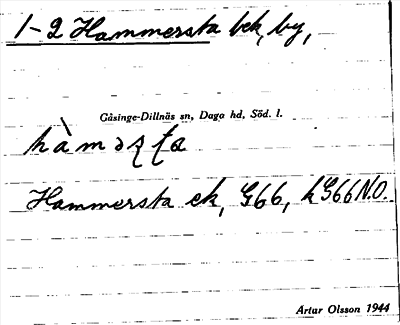 1-2 Hammersta bek, by,
Gåsinge-Dillnäs sn, Daga hd, Söd. l.
hàməʂʈa
Hammersta ek, G66, hG66 N.O.
Artur Olsson 1944